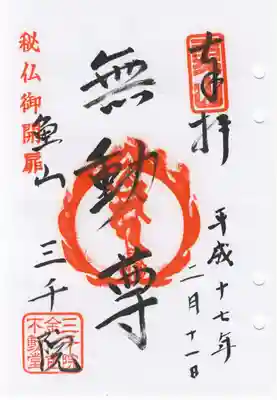 奉拝
平成十七年
二月十一日
無動尊
秘仏御開扉
魚山 三千院
三千院
不動堂